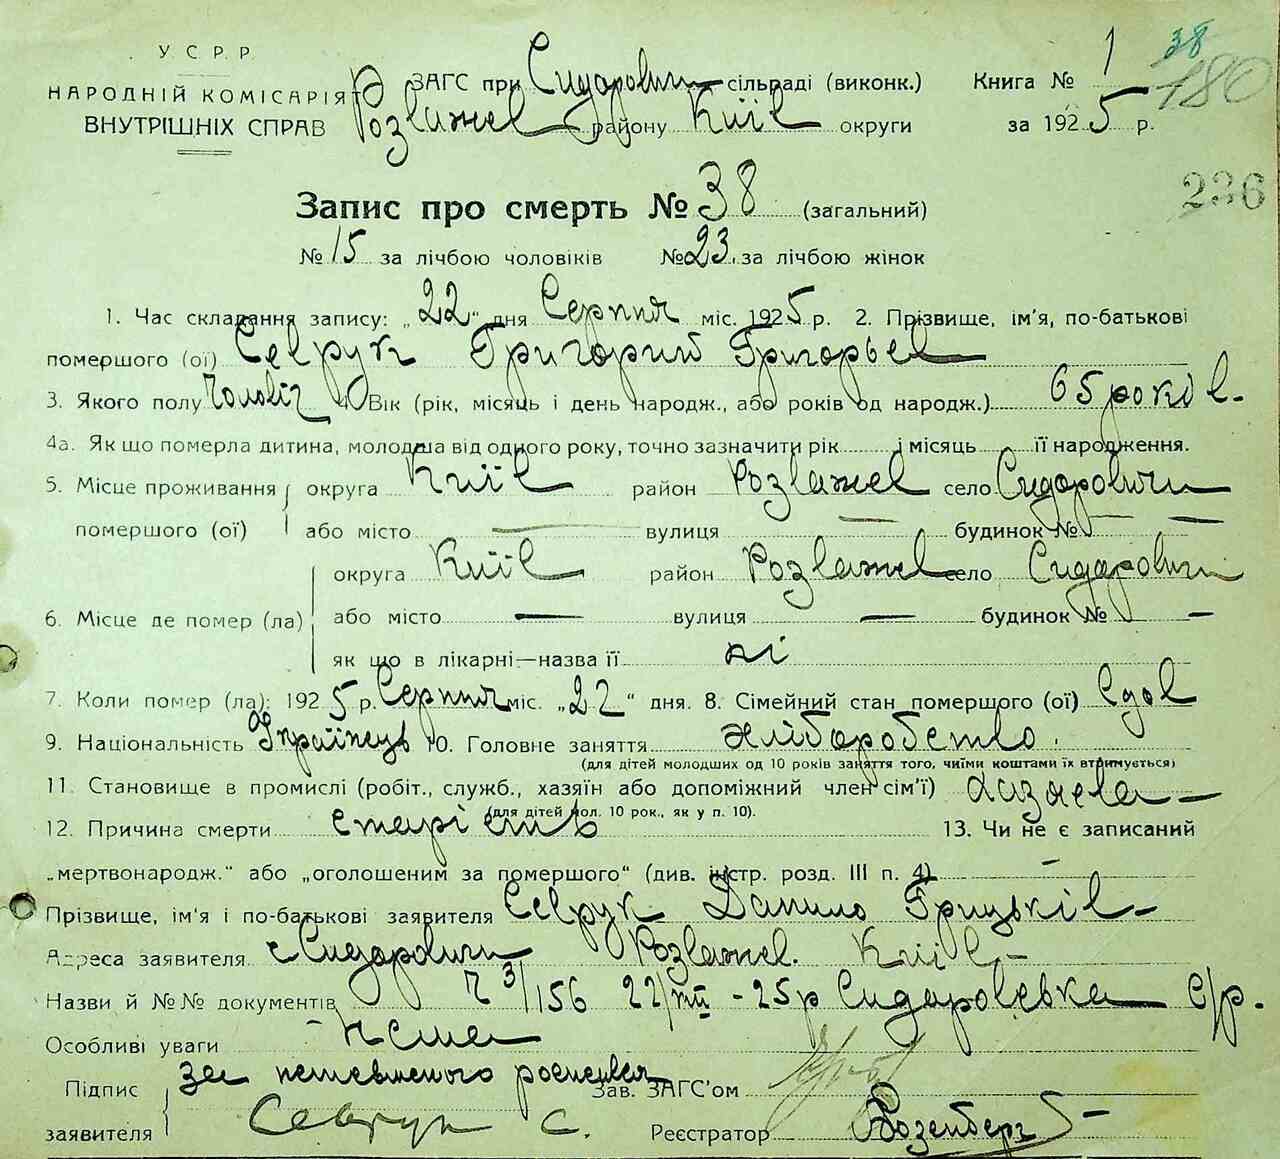 У. С. Р. Р.
НАРОДНІЙ КОМІСАРІЯТ
ВНУТРІШНІХ СПРАВ
ЗАГС при Сидорович сільраді (виконк.)
Розважев району Київ округи
Книга № 1
за 1925 р.
38
180
236
Запис про смерть № 38 (загальний)
№ 15 за лічбою чоловіків № 23 за лічбою жінок
1. Час складання запису: „22" дня Серпня міс. 1925 р. 2. Прізвище, ім'я, по-батькові
помершого (ої) Севрук Григорий Григорьев
3. Якого полу Чоловіч 4. Вік (рік, місяць і день народж., або років од народж.) 65 років
4а. Як що померла дитина, молодша від одного року, точно зазначити рік і місяць її народження.
5. Місце проживання округа Київ район Розважев село Сидоровичи
помершого (ої) або місто — вулиця — будинок № —
округа Київ район Розважев село Сидоровичи
6. Місце де помер (ла) або місто — вулиця — будинок № —
як що в лікарні—назва її ні
7. Коли помер (ла): 1925 р. Серпня міс. „22" дня. 8. Сімейний стан помершого (ої) Сдов
9. Національність Українець 10. Головне заняття хліборобство.
(для дітей молодших од 10 років заняття того, чиїми коштами їх втримується)
11. Становище в промислі (робіт., служб., хазяїн або допоміжний член сім'ї) хазяева
(для дітей мол. 10 рок., як у п. 10).
12. Причина смерти старість 13. Чи не є записаний
„мертвонародж." або „оголошеним за помершого" (див. інстр. розд. III п. 4) —
Прізвище, ім'я і по-батькові заявителя Севрук Данило Грицьків
Адреса заявителя с Сидоровичи Розважев. Київ
Назви й №№ документів Ч 3/156 22/VIII - 25 р Сидоровська С/р.
Особливі уваги - Нема
Підпис за
заявителя Севрук С.
Зав. ЗАГС'ом
Реєстратор Розенберг